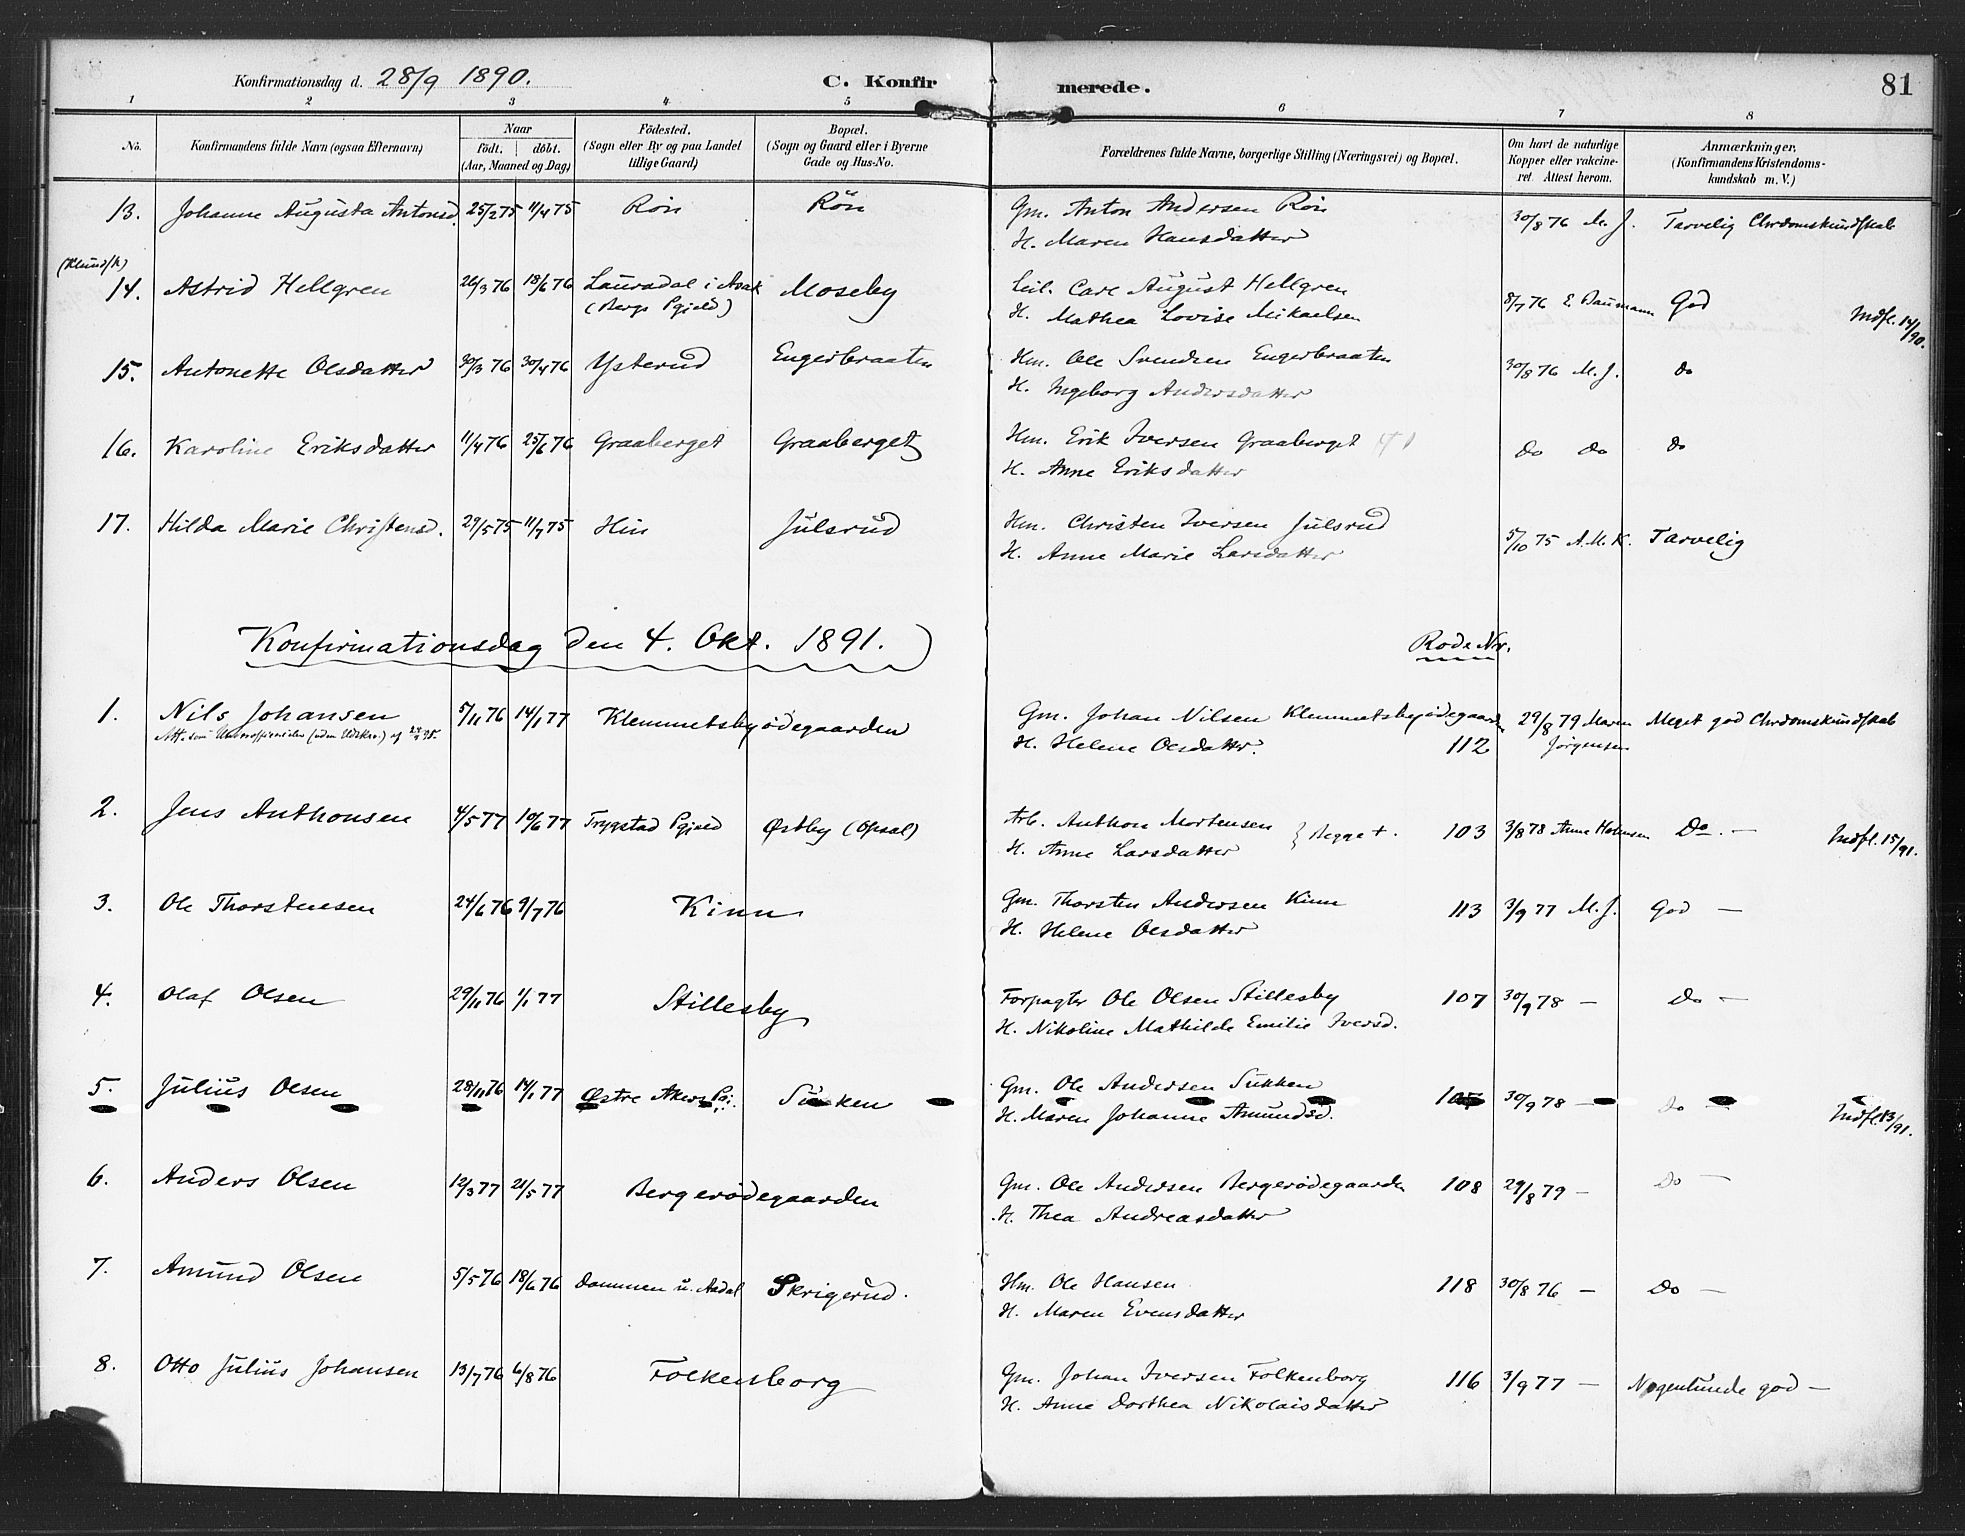 Konfirmationsdag d. 28/9 1890. C. Konfirmerede. 81
1 2 3 4 5 6 7 8
No. Konfirmandens fulde Navn (ogsaa Efternavn) Naar födt. döbt. (Aar, Maaned og Dag) Födested. (Sogn eller By og paa Landet tillige Gaard) Bopæl. (Sogn og Gaard eller i Byerne Gade og Hus-No. Forældrenes fulde Navne, borgerlige Stilling (Næringsvei) og Bopæl. Om havt de naturlige Kopper eller vakcineret. Attest herom. Anmærkninger. (Konfirmandens Kristendomskundskab m. V.)
13. Johanne Augusta Antonsd. 25/2 75 11/4 75 Rön Rön Gm. Anton Andersen Rön 30/8 76 M. J. Tarvelig Chrdomskundskab
H. Maren Hansdatter
(Klund/k)
14. Astrid Hellgren 26/3 76 18/6 76 Lauradal i Asak (Bergs Pgjeld) Moseby Leil. Carl August Hellgren 8/7 76 E. Baumann God Indfl. 14/90.
H. Mathea Lovise Mikaelsen
15. Antonette Olsdatter 30/3 76 30/4 76 Ysterud Engerbraaten Hm. Ole Svendsen Engerbraaten 30/8 76 M. J. Do
H. Ingeborg Andersdatter
16. Karoline Eriksdatter 11/4 76 25/6 76 Graaberget Graaberget Hm. Erik Iversen Graaberget Do Do Do
H. Anne Eriksdatter
17. Hilda Marie Christensd. 29/5 75 11/7 75 Hin Julsrud Hm. Christen Iversen Julsrud 5/10 75 A. M. K. Tarvelig
H. Anne Marie Larsdatter
Konfirmationsdag den 4. Okt. 1891.) Rode Nr.
1. Nils Johansen 5/11 76 14/1 77 Klemmetsbyødegaarden Gm. Johan Nilsen Klemmetsbyødegaarden 29/8 79 Maren Jørgensen Meget god Chrdomskundskab
H. Helene Olsdatter. 112
2. Jens Anthonsen 4/5 77 10/6 77 Trygstad Pgjeld Østby (Opsal) Arb. Anthon Mortensen } Begge +. 103 3/8 78 Anne Halvnsen Do. — Indfl. 15/91.
H. Anne Larsdatter
3. Ole Thorstensen 24/6 76 9/7 76 Kinn Gm. Thorsten Andersen Kinn 113 3/9 77 M. J. God —
H. Helene Olsdatter
4. Olaf Olsen 29/11 76 1/1 77 Stillesby Forpagter Ole Olsen Stillesby 107 30/9 78 — Do —
H. Nikoline Mathilde Emilie Iversd.
5. Julius Olsen 28/11 76 14/1 77 Østre Akers Pgj. Sukken Gm. Ole Andersen Sukken 105 30/9 78 — Do — Indfl. 13/91.
H. Maren Johanne Amundsd.
6. Anders Olsen 12/3 77 21/5 77 Bergerødegaarden Gm. Ole Andersen Bergerødegaarden 108 29/8 79 — Do —
H. Thea Andreasdatter
7. Amund Olsen 5/5 76 18/6 76 Dammen u. Aadal Skrigerud. Hm. Ole Hansen 118 30/8 76 — Do —
H. Maren Evensdatter
8. Otto Julius Johansen 13/7 76 6/8 76 Folkenborg Gm. Johan Iversen Folkenborg 116 3/9 77 — Nogenlunde god —
H. Anne Dorthea Nikolaisdatter